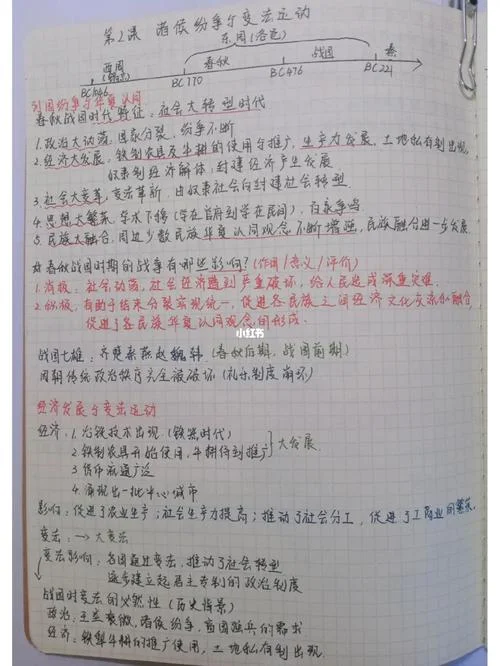 第2课 诸侯纷争与变法运动
东周(各乱)
西周 春秋 战国 秦
BC1046 BC770 BC476 BC221
列国纷争与华夏认同
春秋战国时代特征:社会大转型时代
1.政治大动荡,国家分裂,纷争不断
2.经济大发展,铁制农具及牛耕的使用与推广,生产力发展,土地私有制出现,
奴隶制经济解体,封建经济产生发展
3.社会大变革,变法革新,由奴隶社会向封建社会转型
4.思想大繁荣,学术下移(学在官府到学在民间),百家争鸣
5.民族大融合,周边少数民族华夏认同观念不断增强,民族融合进一步发展
春秋战国时期的战争有哪些影响?(作用/意义/评价)
1.消极:社会动荡,社会经济遭到严重破坏,给人民造成深重灾难
2.积极:有助于结束分裂实现统一,促进各民族之间经济文化交流和融合,
促进了各民族华夏认同观念的形成.
小红书
战国七雄:齐楚秦燕赵魏韩.(春秋后期,战国前期)
周朝传统政治秩序完全被破坏(礼乐制度崩坏)
经济发展与变法运动
经济:1.冶铁技术出现(铁器时代)
2.铁制农具开始使用,牛耕得到推广 大发展
3.货币流通广泛
4.涌现出一批中心城市
影响:促进了农业生产;社会生产力提高;推动了社会分工,促进了工商业的繁荣.
变法:→大变法
变法影响:各国通过变法,推动了社会转型
逐步建立起君主专制的政治制度
战国时变法的必然性(历史背景)
政治:王室衰微,诸侯纷争,富国强兵的需求
经济:铁犁牛耕的推广使用,土地私有制出现.